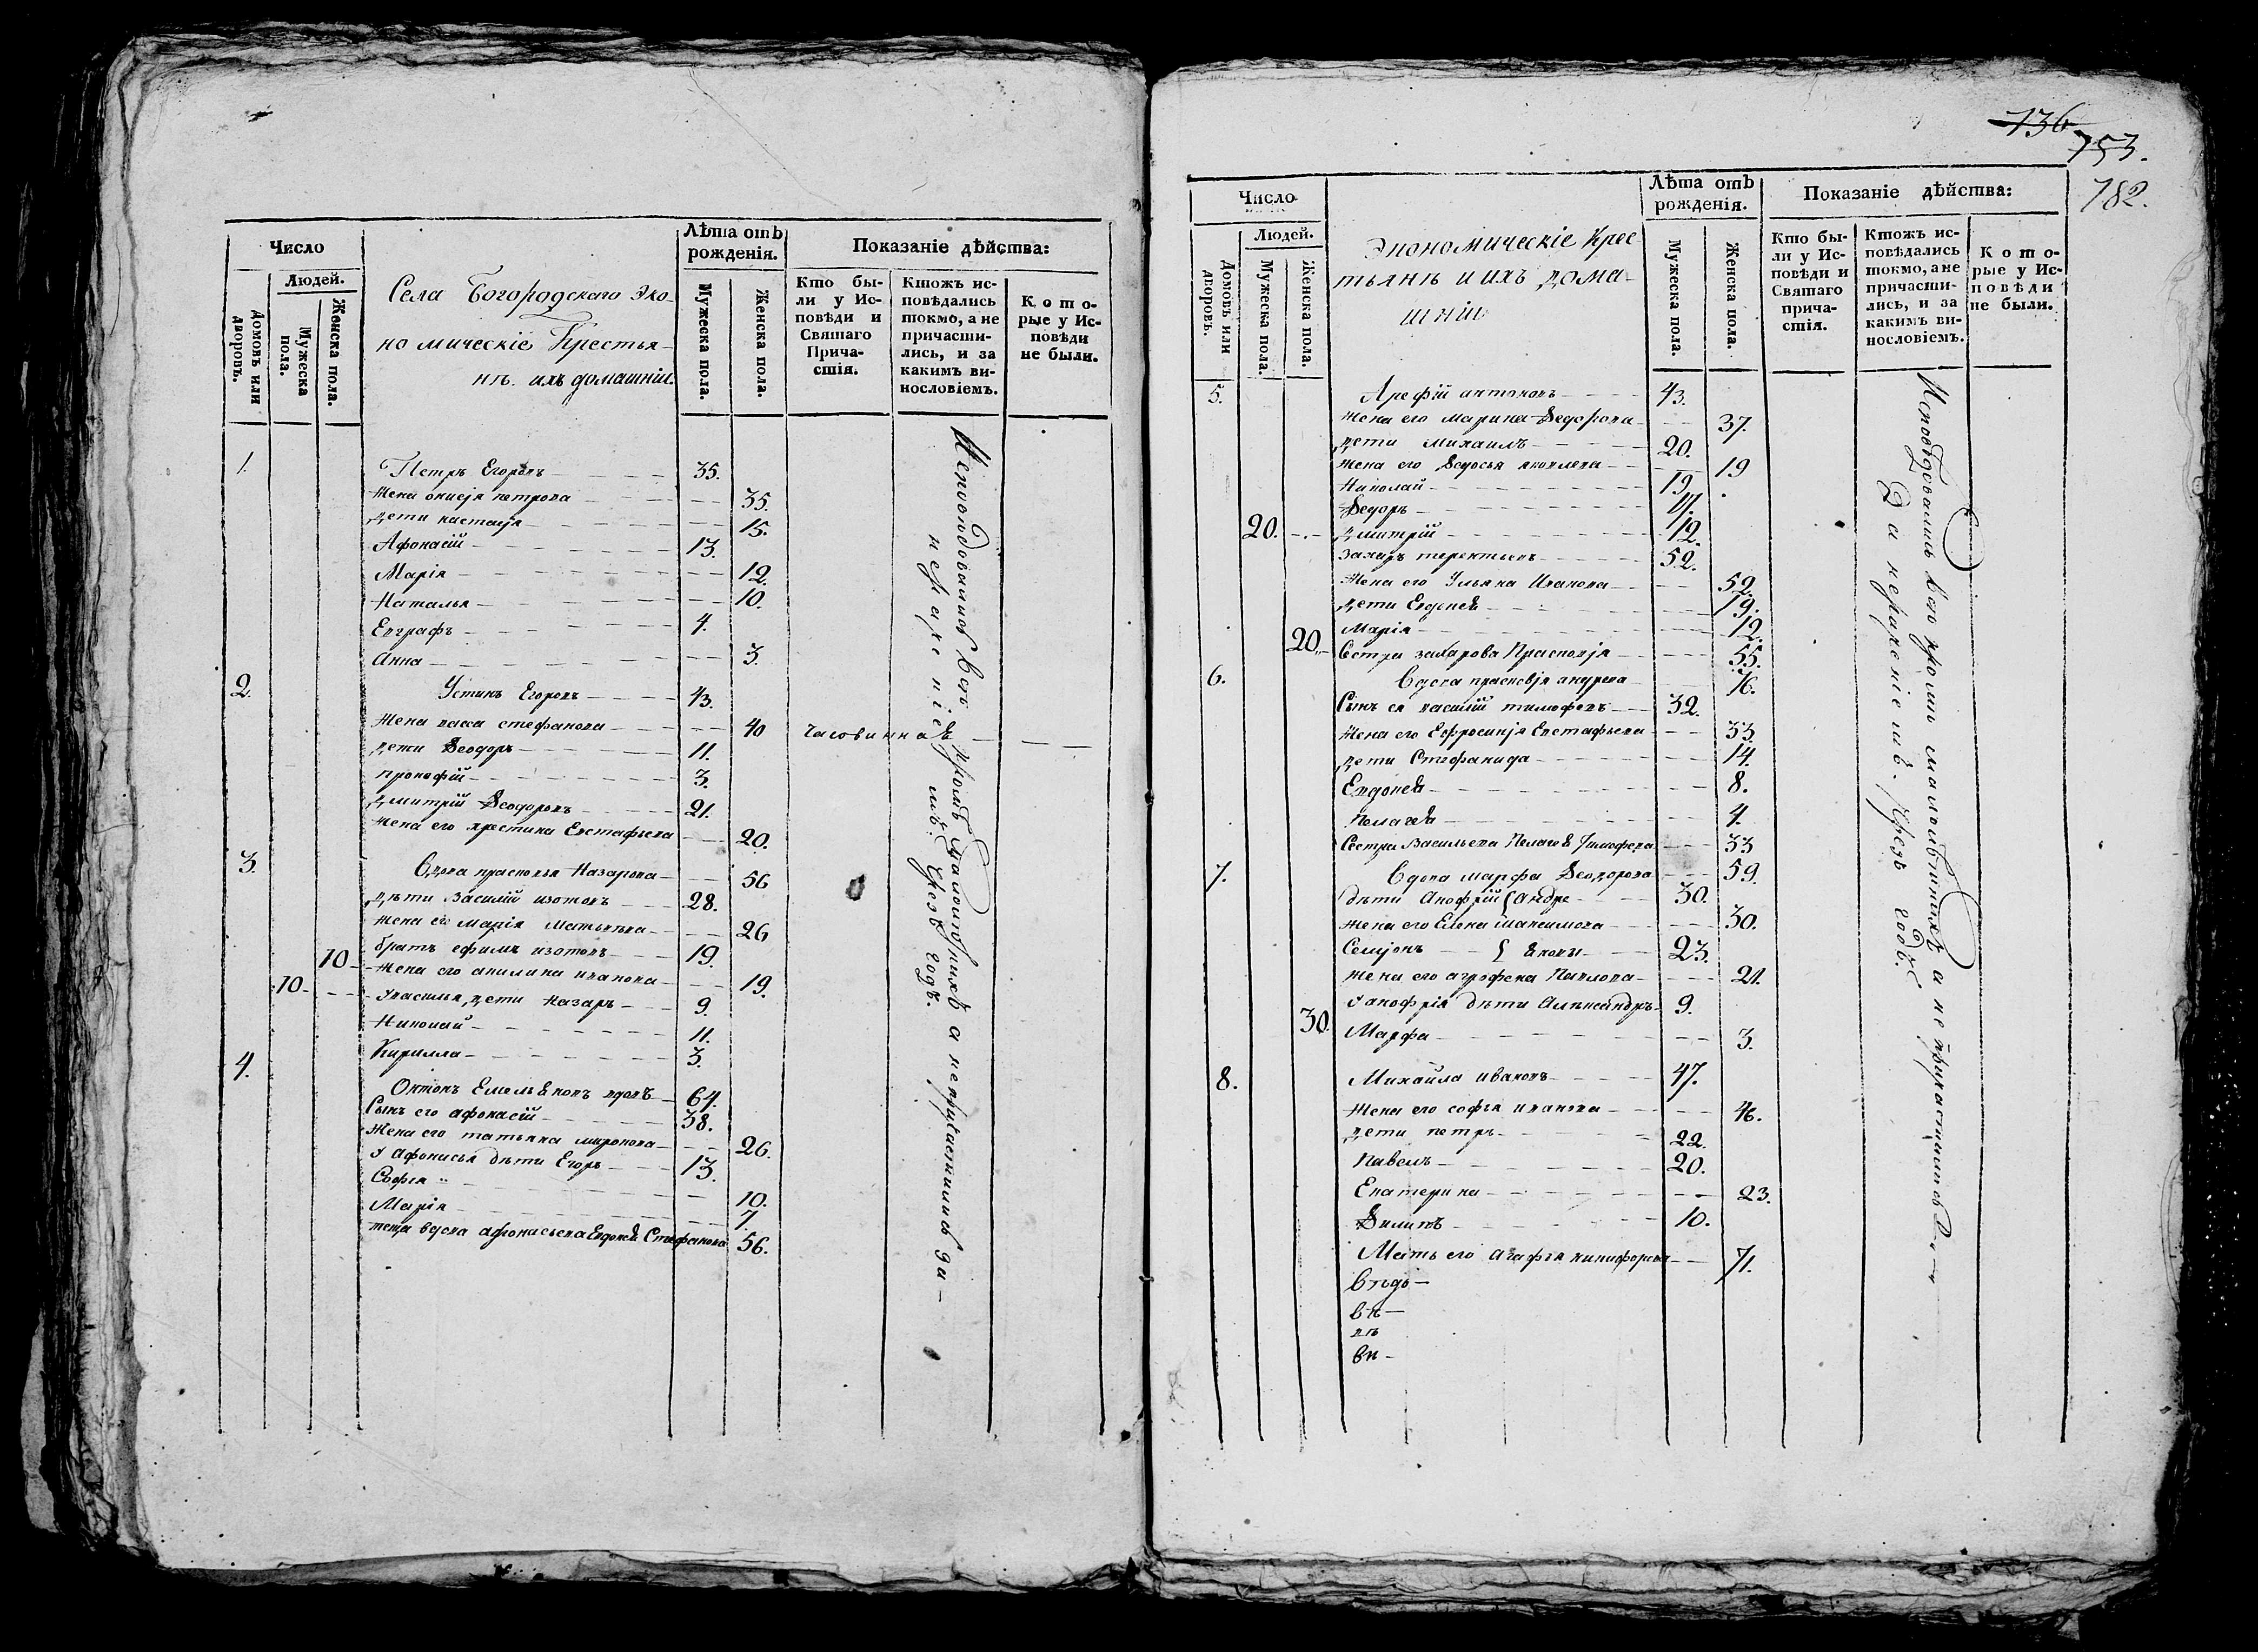 Число
Людей.
Домовъ или дворовъ.
Мужеска пола.
Женска пола.
Села Богородскаго Эко-
номическіе Крестья-
нѣ ихъ домашніи.
Лѣта отъ
рожденія.
Мужеска пола.
Женска пола.
Показаніе дѣйства:
Кто бы-
ли у Ис-
повѣди и
Святаго
Прича-
стія.
Ктожъ ис-
повѣдались
токмо, а не
причасти-
лись, и за
какимъ ви-
нословіемъ.
Кото-
рые у Ис-
повѣди
не были.
1. Петръ Егоровъ 35.
Жена его петрова 35.
дети настасја 15.
Афонасій 13.
Марія 12.
Наталья 10.
Евграфъ 4.
Анна 3.
2. Устинъ Егоровъ 43.
Жена васса стефанова 40
дети Ѳеодоръ 11.
прокофій 3.
дмитрій Ѳеодоровъ 21.
Жена его христина Евстафьева 20.
3. Вдова прасковья Назарова 56
дѣти Василій изотовъ 28.
Жена его Марія Матвѣева 26
братъ ефимъ изотовъ 19.
10 Жена его акилина иванова 19.
10 Увасилья дети Назаръ 9.
Николай 11.
Кирилла 3.
4. Онтонъ Емельяновъ вдовъ 64.
Сынъ его афонасій 38.
Жена его татьяна миронова 26.
У Афонасья дѣти Егоръ 13.
Софья 10.
Марія 7.
теща вдова афонасьева Евдокея Стефанова 56.
Исповѣдовались всѣ кромѣ малолѣтнихъ а непричастились за-
нераченіемъ. Чрезъ годъ.
136
753.
782.
Число
Людей.
Домовъ или дворовъ.
Мужеска пола.
Женска пола.
Экономическіе Крес-
тьянѣ и ихъ дома-
шніи
Лѣта отъ
рожденія.
Мужеска пола.
Женска пола.
Показаніе дѣйства:
Кто бы-
ли у Ис-
повѣди и
Святаго
прича-
стія.
Ктожъ ис-
повѣдались
токмо, а не
причасти-
лись, и за
какимъ ви-
нословіемъ.
Кото-
рые у Ис-
повѣди
не были.
5. Арефій антоновъ 43.
Жена его Марина Ѳедорова 37.
дети михаилъ 20.
Жена его Ѳедосья яковлева 19
Николай 19.
Ѳедоръ 17.
20. дмитрій 12.
Захаръ терентьевъ 52.
Жена его Ульяна Иванова 52.
дети Евдокея 19.
Марія 12.
20 Сестра захарова Прасковја 55.
6. Вдова прасковја андреева 76.
Сынъ ея василій тимофеевъ 32.
Жена его Ефросинја Евстафьева 33
дети Стефанида 14.
Евдокея 8.
Пелагея 4.
Сестра Васильева Пелагея Тимофеева 33
7. Вдова марфа Ѳеодорова 59.
дѣти Анофрій Андре 30.
Жена его Елена Максимова 30.
Семјонъ 23.
Жена его аграфена Павлова 21.
У анофрія дѣти Алѣксандръ 9.
30. Марфа 3.
8. Михайла ивановъ 47.
Жена его софья иванова 46.
дети петръ 22.
Павелъ 20.
Екатерина 23.
Ѳилипъ 10.
Мать его агафья никифорова 71.
Исповѣдовались всѣ кромѣ малолѣтнихъ а непричастились
За нераченіемъ. Чрезъ годъ.